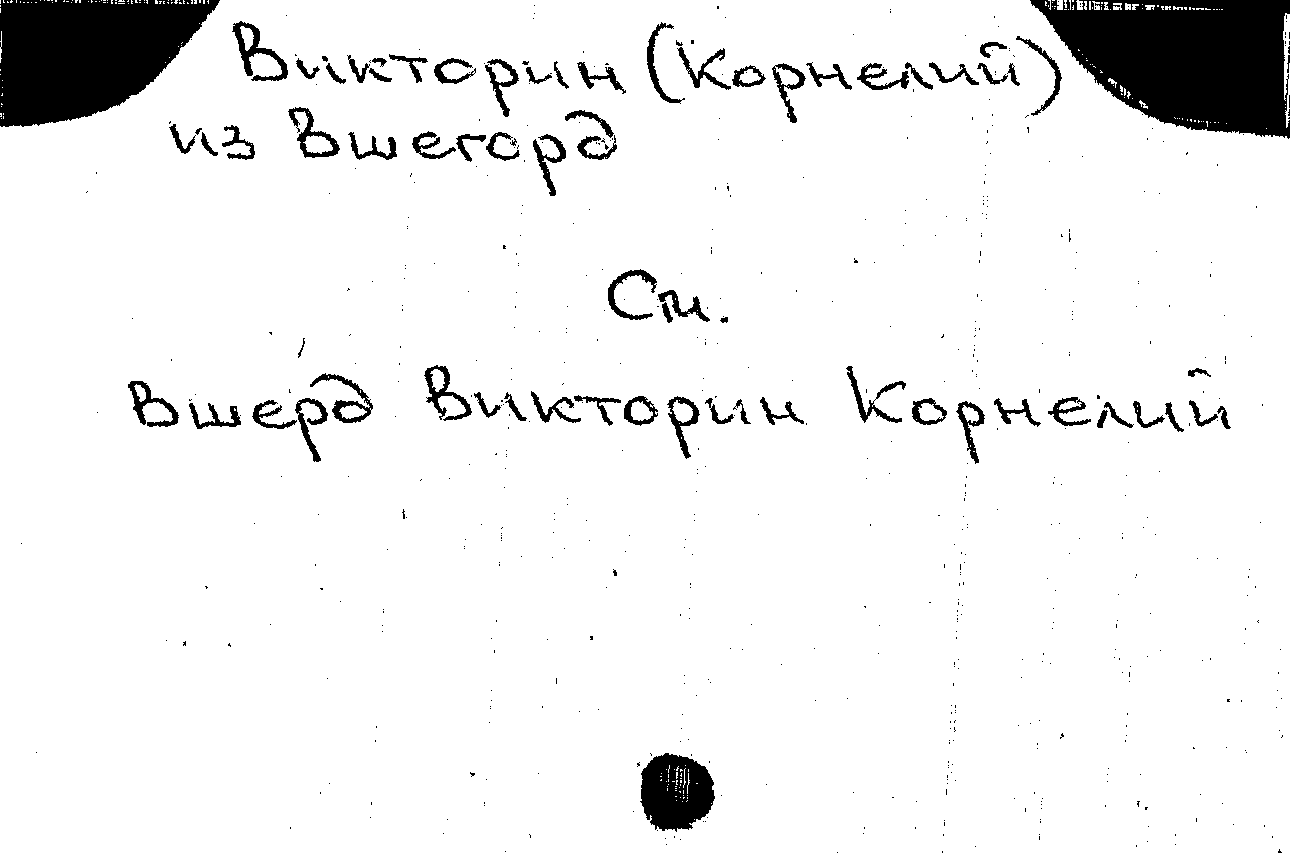 Викторин (Корнелий)
из Вшегорд
См.
Вшерд Викторин Корнелий